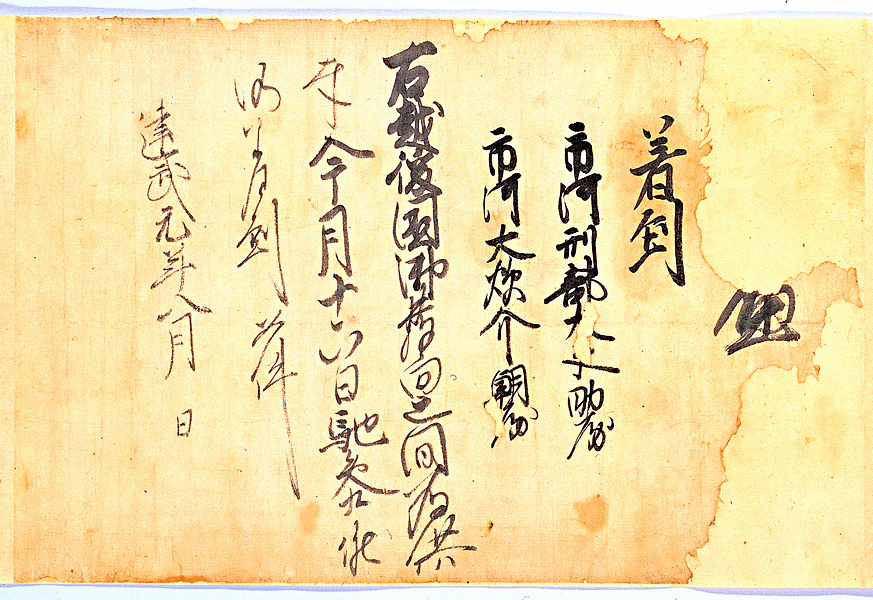 着到
市河刑部大夫助房
市河大炊介房
右越後国御発向之間為供
奉今月十六日馳参候
仍着到如件
建武元年八月 日